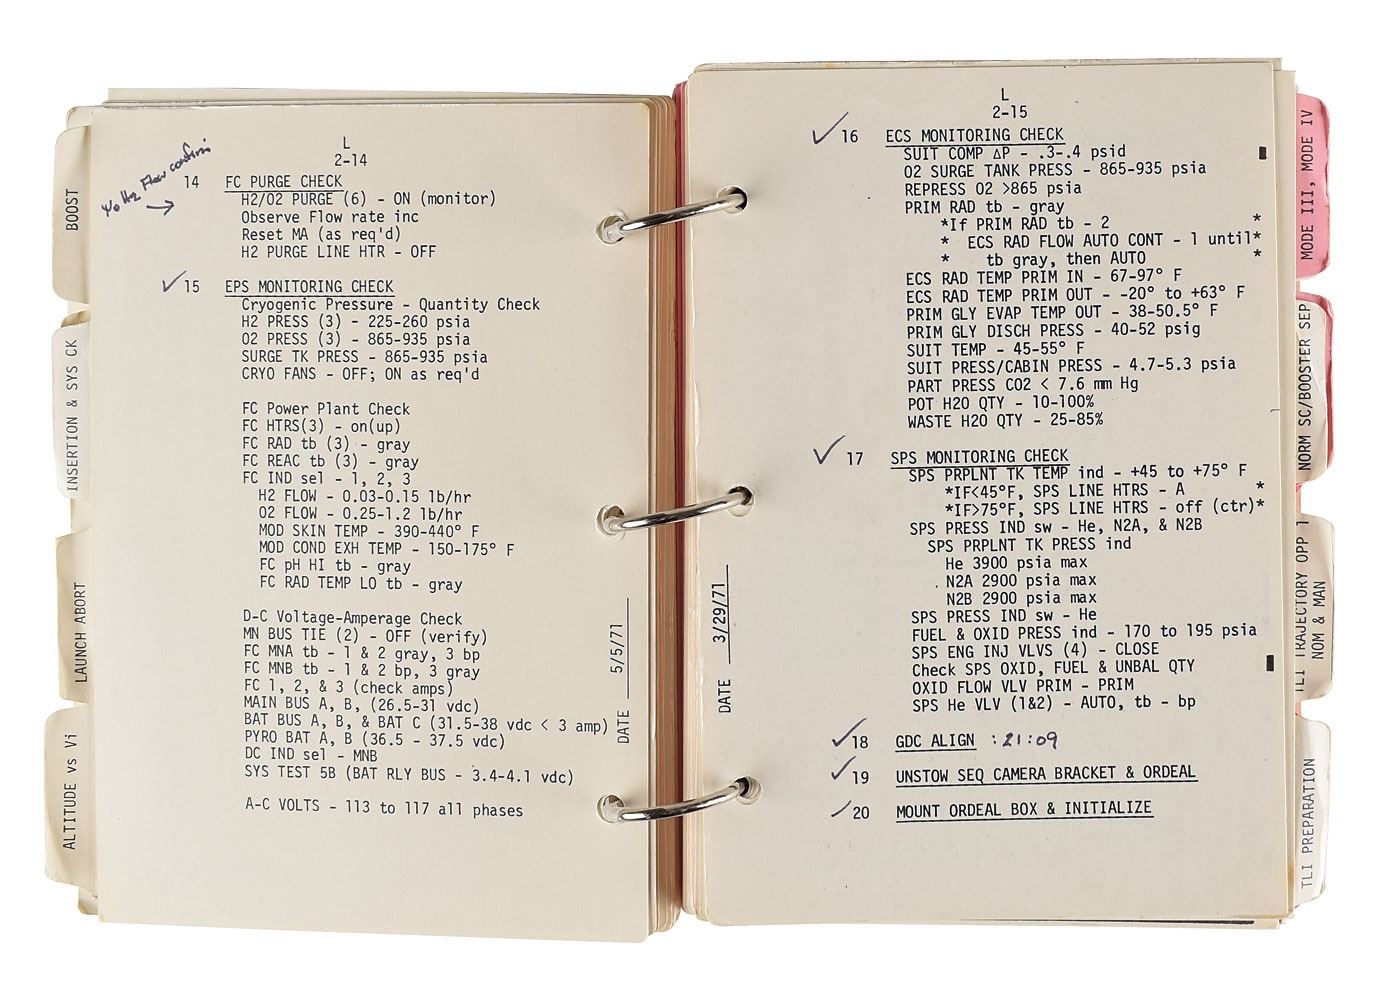 BOOST
INSERTION & SYS CK
LAUNCH ABORT
ALTITUDE vs Vi
L
2-14
No H2 Flow confirm
14 FC PURGE CHECK
H2/O2 PURGE (6) - ON (monitor)
Observe Flow rate inc
Reset MA (as req'd)
H2 PURGE LINE HTR - OFF
✓ 15 EPS MONITORING CHECK
Cryogenic Pressure - Quantity Check
H2 PRESS (3) - 225-260 psia
O2 PRESS (3) - 865-935 psia
SURGE TK PRESS - 865-935 psia
CRYO FANS - OFF; ON as req'd
FC Power Plant Check
FC HTRS(3) - on(up)
FC RAD tb (3) - gray
FC REAC tb (3) - gray
FC IND sel - 1, 2, 3
H2 FLOW - 0.03-0.15 lb/hr
O2 FLOW - 0.25-1.2 lb/hr
MOD SKIN TEMP - 390-440° F
MOD COND EXH TEMP - 150-175° F
FC pH HI tb - gray
FC RAD TEMP LO tb - gray
D-C Voltage-Amperage Check
MN BUS TIE (2) - OFF (verify)
FC MNA tb - 1 & 2 gray, 3 bp
FC MNB tb - 1 & 2 bp, 3 gray
FC 1, 2, & 3 (check amps)
MAIN BUS A, B, (26.5-31 vdc)
BAT BUS A, B, & BAT C (31.5-38 vdc < 3 amp)
PYRO BAT A, B (36.5 - 37.5 vdc)
DC IND sel - MNB
SYS TEST 5B (BAT RLY BUS - 3.4-4.1 vdc)
A-C VOLTS - 113 to 117 all phases
DATE 5/5/71
L
2-15
✓ 16 ECS MONITORING CHECK
SUIT COMP ΔP - .3-.4 psid
O2 SURGE TANK PRESS - 865-935 psia
REPRESS O2 >865 psia
PRIM RAD tb - gray
*If PRIM RAD tb - 2 *
* ECS RAD FLOW AUTO CONT - 1 until*
* tb gray, then AUTO *
ECS RAD TEMP PRIM IN - 67-97° F
ECS RAD TEMP PRIM OUT - -20° to +63° F
PRIM GLY EVAP TEMP OUT - 38-50.5° F
PRIM GLY DISCH PRESS - 40-52 psig
SUIT TEMP - 45-55° F
SUIT PRESS/CABIN PRESS - 4.7-5.3 psia
PART PRESS CO2 < 7.6 mm Hg
POT H2O QTY - 10-100%
WASTE H2O QTY - 25-85%
✓ 17 SPS MONITORING CHECK
SPS PRPLNT TK TEMP ind - +45 to +75° F
*IF<45°F, SPS LINE HTRS - A *
*IF>75°F, SPS LINE HTRS - off (ctr)*
SPS PRESS IND sw - He, N2A, & N2B
SPS PRPLNT TK PRESS ind
He 3900 psia max
N2A 2900 psia max
N2B 2900 psia max
SPS PRESS IND sw - He
FUEL & OXID PRESS ind - 170 to 195 psia
SPS ENG INJ VLVS (4) - CLOSE
Check SPS OXID, FUEL & UNBAL QTY
OXID FLOW VLV PRIM - PRIM
SPS He VLV (1&2) - AUTO, tb - bp
✓ 18 GDC ALIGN :21:09
✓ 19 UNSTOW SEQ CAMERA BRACKET & ORDEAL
✓ 20 MOUNT ORDEAL BOX & INITIALIZE
DATE 3/29/71
MODE III, MODE IV
NORM SC/BOOSTER SEP
TLI TRAJECTORY OPP 1
NOM & MAN
TLI PREPARATION